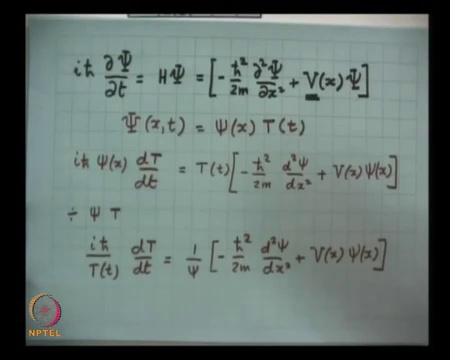 iħ ∂Ψ/∂t = HΨ = [- ħ²/2m ∂²Ψ/∂x² + V(x)Ψ]
Ψ(x,t) = ψ(x) T(t)
iħ ψ(x) dT/dt = T(t)[- ħ²/2m d²ψ/dx² + V(x)ψ(x)]
÷ ψ T
iħ/T(t) dT/dt = 1/ψ [- ħ²/2m d²ψ/dx² + V(x) ψ(x)]
NPTEL